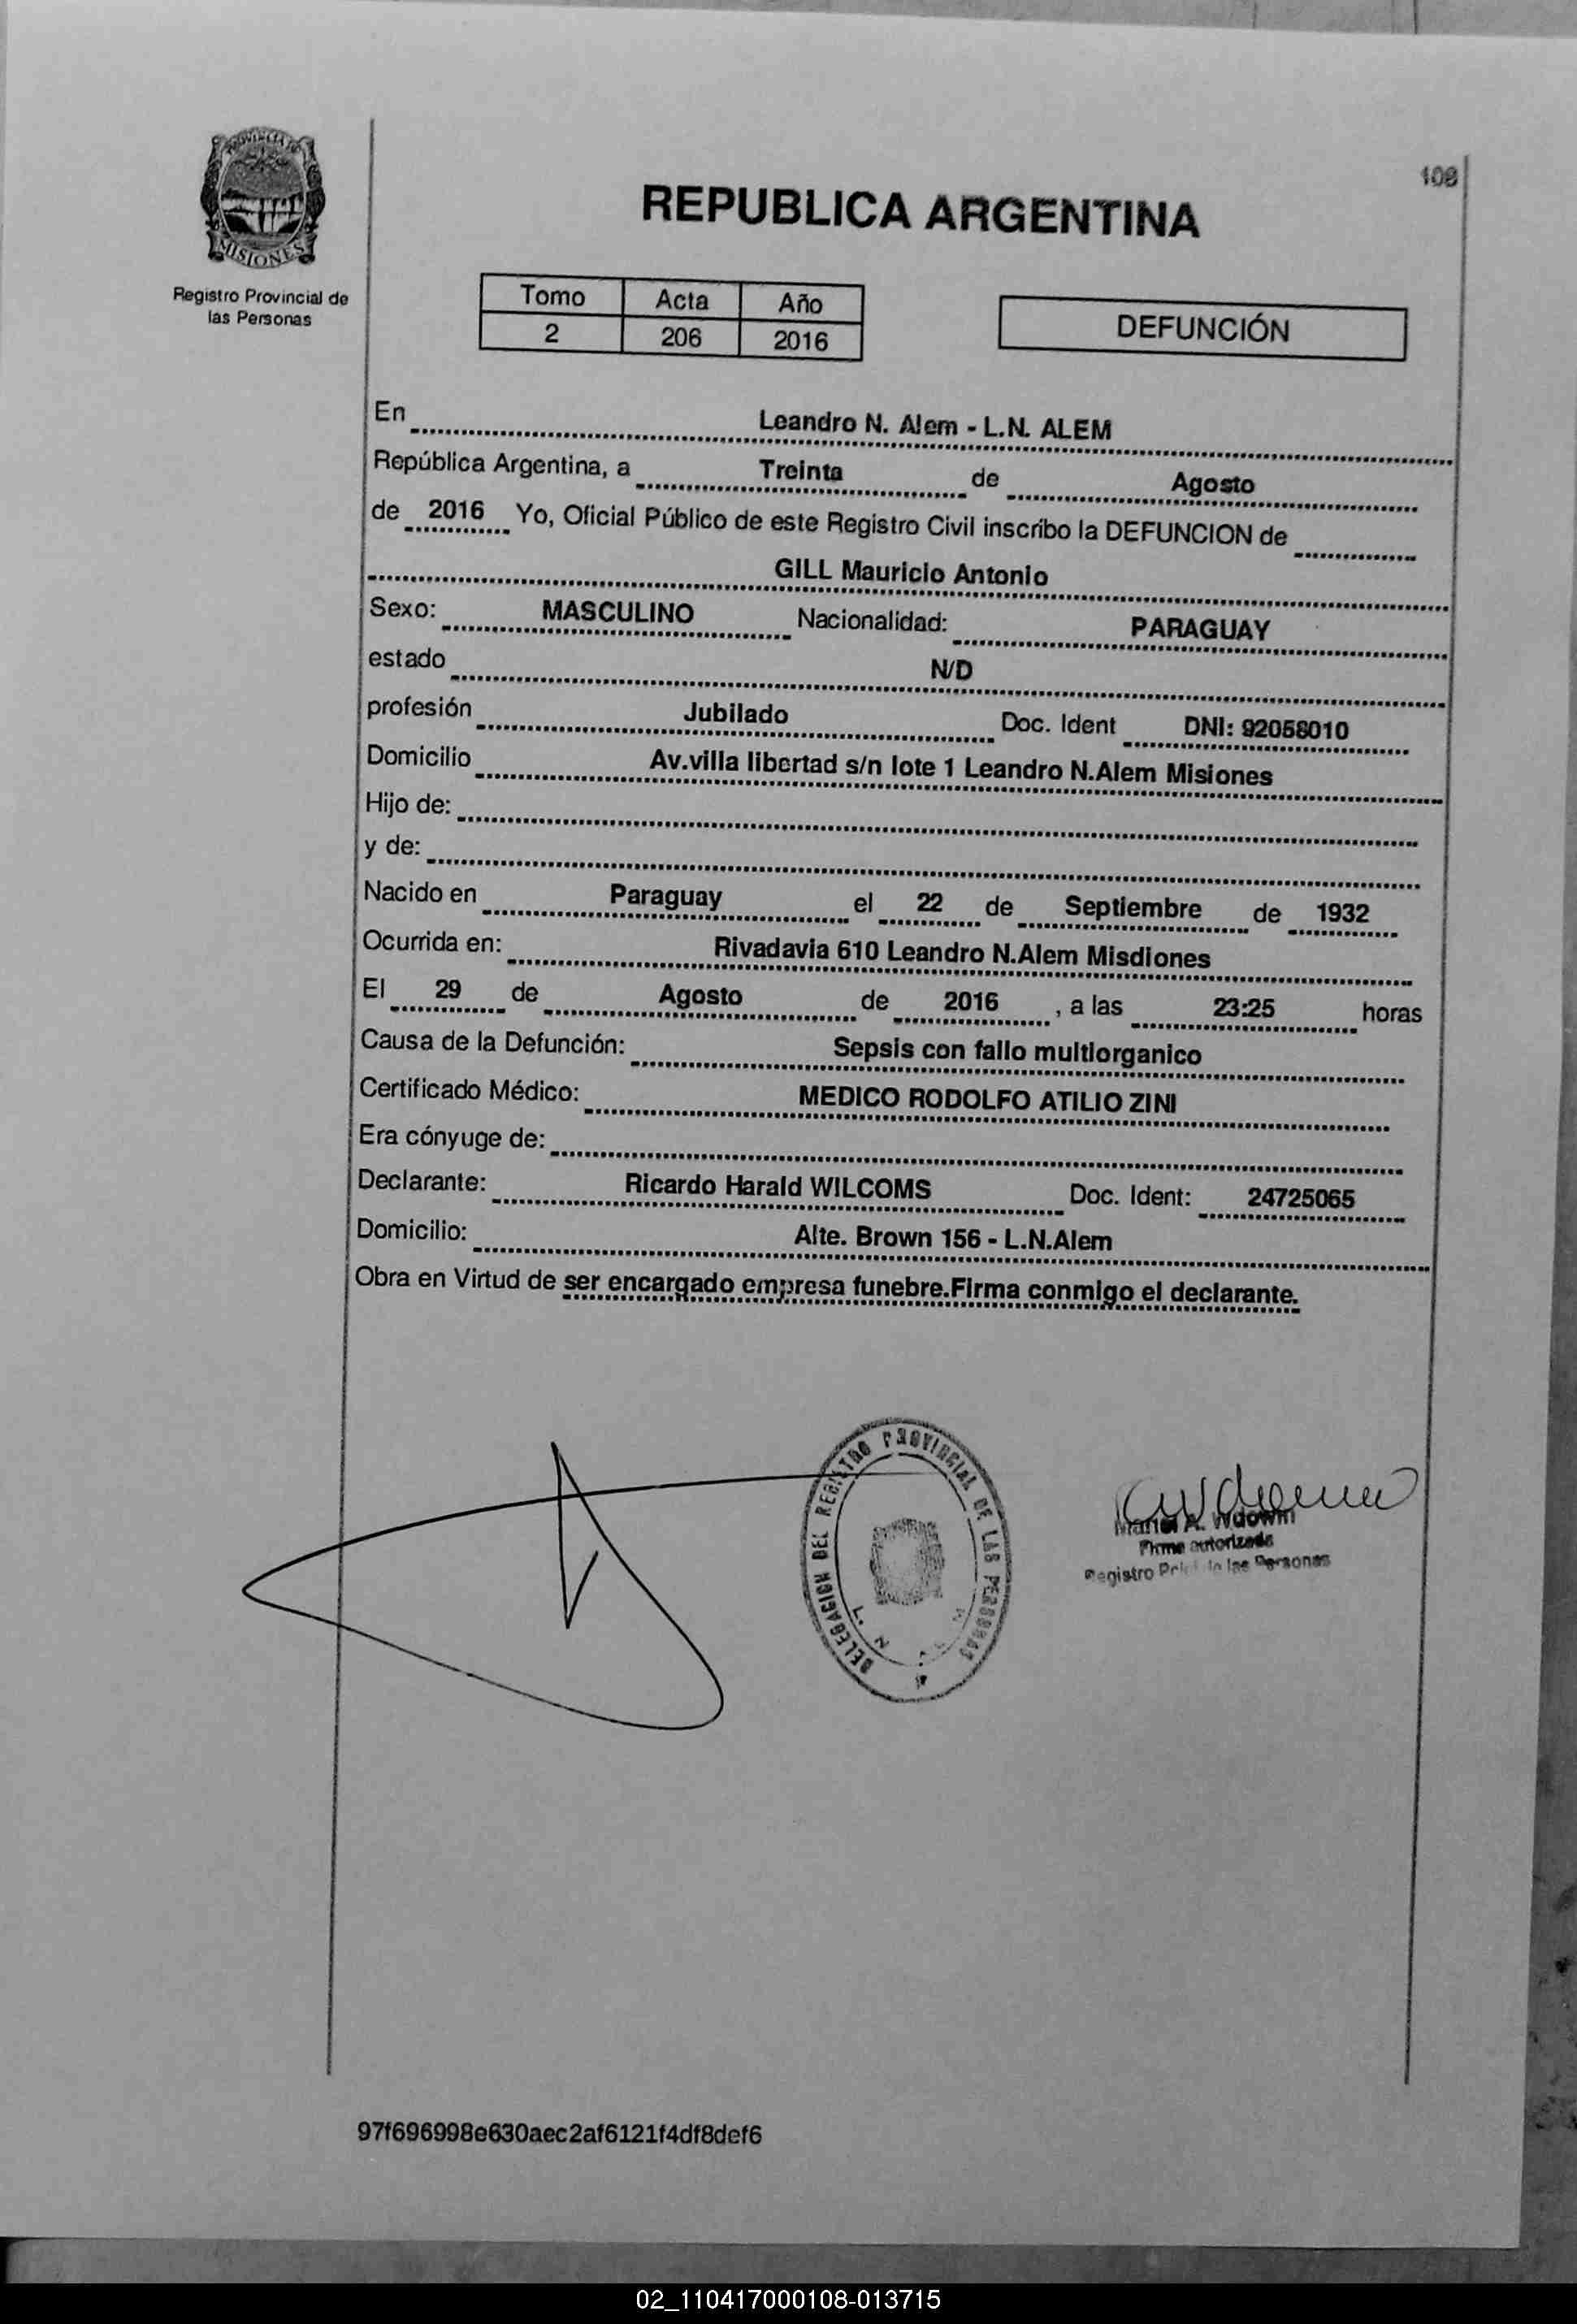 108
PROVINCIA DE
MISIONES
Registro Provincial de
las Personas
REPUBLICA ARGENTINA
Tomo Acta Año
2 206 2016
DEFUNCIÓN
En Leandro N. Alem - L.N. ALEM
República Argentina, a Treinta de Agosto
de 2016 Yo, Oficial Público de este Registro Civil inscribo la DEFUNCION de
GILL Mauricio Antonio
Sexo: MASCULINO Nacionalidad: PARAGUAY
estado N/D
profesión Jubilado Doc. Ident DNI: 92058010
Domicilio Av.villa libertad s/n lote 1 Leandro N.Alem Misiones
Hijo de:
y de:
Nacido en Paraguay el 22 de Septiembre de 1932
Ocurrida en: Rivadavia 610 Leandro N.Alem Misdiones
El 29 de Agosto de 2016 , a las 23:25 horas
Causa de la Defunción: Sepsis con fallo multiorganico
Certificado Médico: MEDICO RODOLFO ATILIO ZINI
Era cónyuge de:
Declarante: Ricardo Harald WILCOMS Doc. Ident: 24725065
Domicilio: Alte. Brown 156 - L.N.Alem
Obra en Virtud de ser encargado empresa funebre.Firma conmigo el declarante.
DELEGACION DEL REGISTRO PROVINCIAL DE LAS PERSONAS
L. N.
A. Wdowin
Firma autorizada
Registro las Personas
97f696998e630aec2af6121f4df8def6
02_110417000108-013715